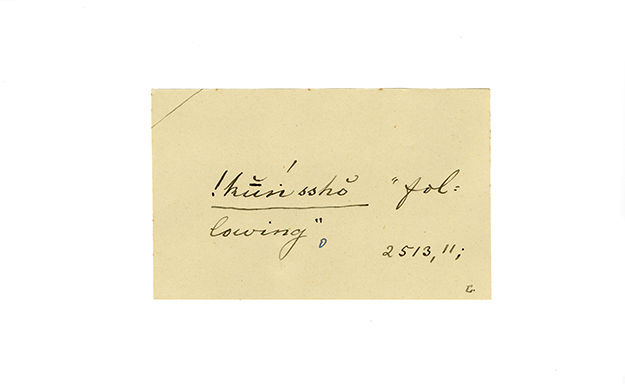 !kŭ̱ńsshŏ "fol=
lowing",
2513,11;